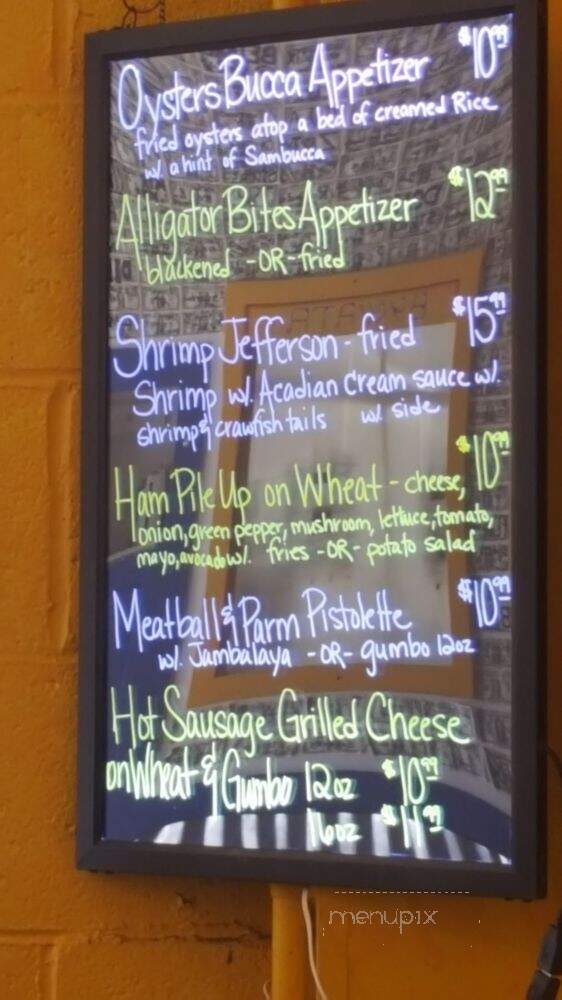 Oysters Bucca Appetizer $10.99
fried oysters atop a bed of creamed Rice
w/ a hint of Sambucca
Alligator Bites Appetizer $12.99
blackened -OR- fried
Shrimp Jefferson - fried $15.99
Shrimp w/. Acadian Cream sauce w/.
shrimp & crawfish tails w/. side
Ham Pile Up on Wheat - cheese, $10.99
onion, green pepper, mushroom, lettuce, tomato,
mayo, avocado w/. fries -OR- potato salad
Meatball & Parm Pistolette $10.99
w/. Jambalaya -OR- gumbo 12oz
Hot Sausage Grilled Cheese
on Wheat & Gumbo 12oz $10.99
16oz $11.99
menupix